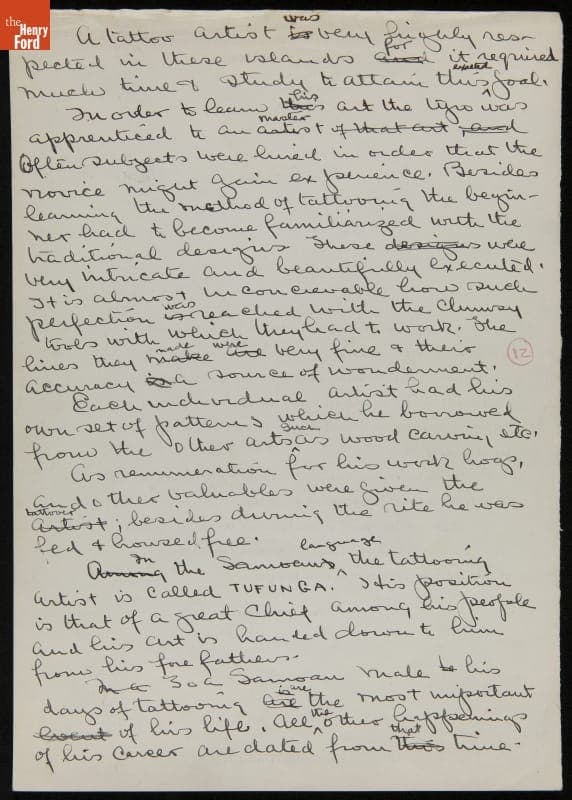 the
Henry
Ford
A tattoo artist is was very highly res-
pected in these islands and for it required
much time & study to attain this exalted goal.
In order to learn this his art the tyro was
apprenticed to an artist master of that art, and
Often subjects were hired in order that the
novice might gain experience. Besides
learning the method of tattooing the begin-
ner had to become familiarized with the
traditional designs These designs were
very intricate and beautifully executed.
It is almost inconceivable how such
perfection is was reached with the clumsy
tools with which they had to work. The
lines they make made are were very fine & their
accuracy is a source of wonderment.
12
Each individual artist had his
own set of patterns which he borrowed
from the other arts such as wood carving etc.
As remuneration for his work hogs,
and other valuables were given the
artist, tattooer besides during the rite he was
fed & housed free.
Among In the Samoans language the tattooing
artist is called TUFUNGA. His position
is that of a great Chief among his people
and his art is handed down to him
from his forefathers.
In a To a Samoan male his
days of tattooing are the most important
event of his life. All the other happenings
of his career are dated from this that time.